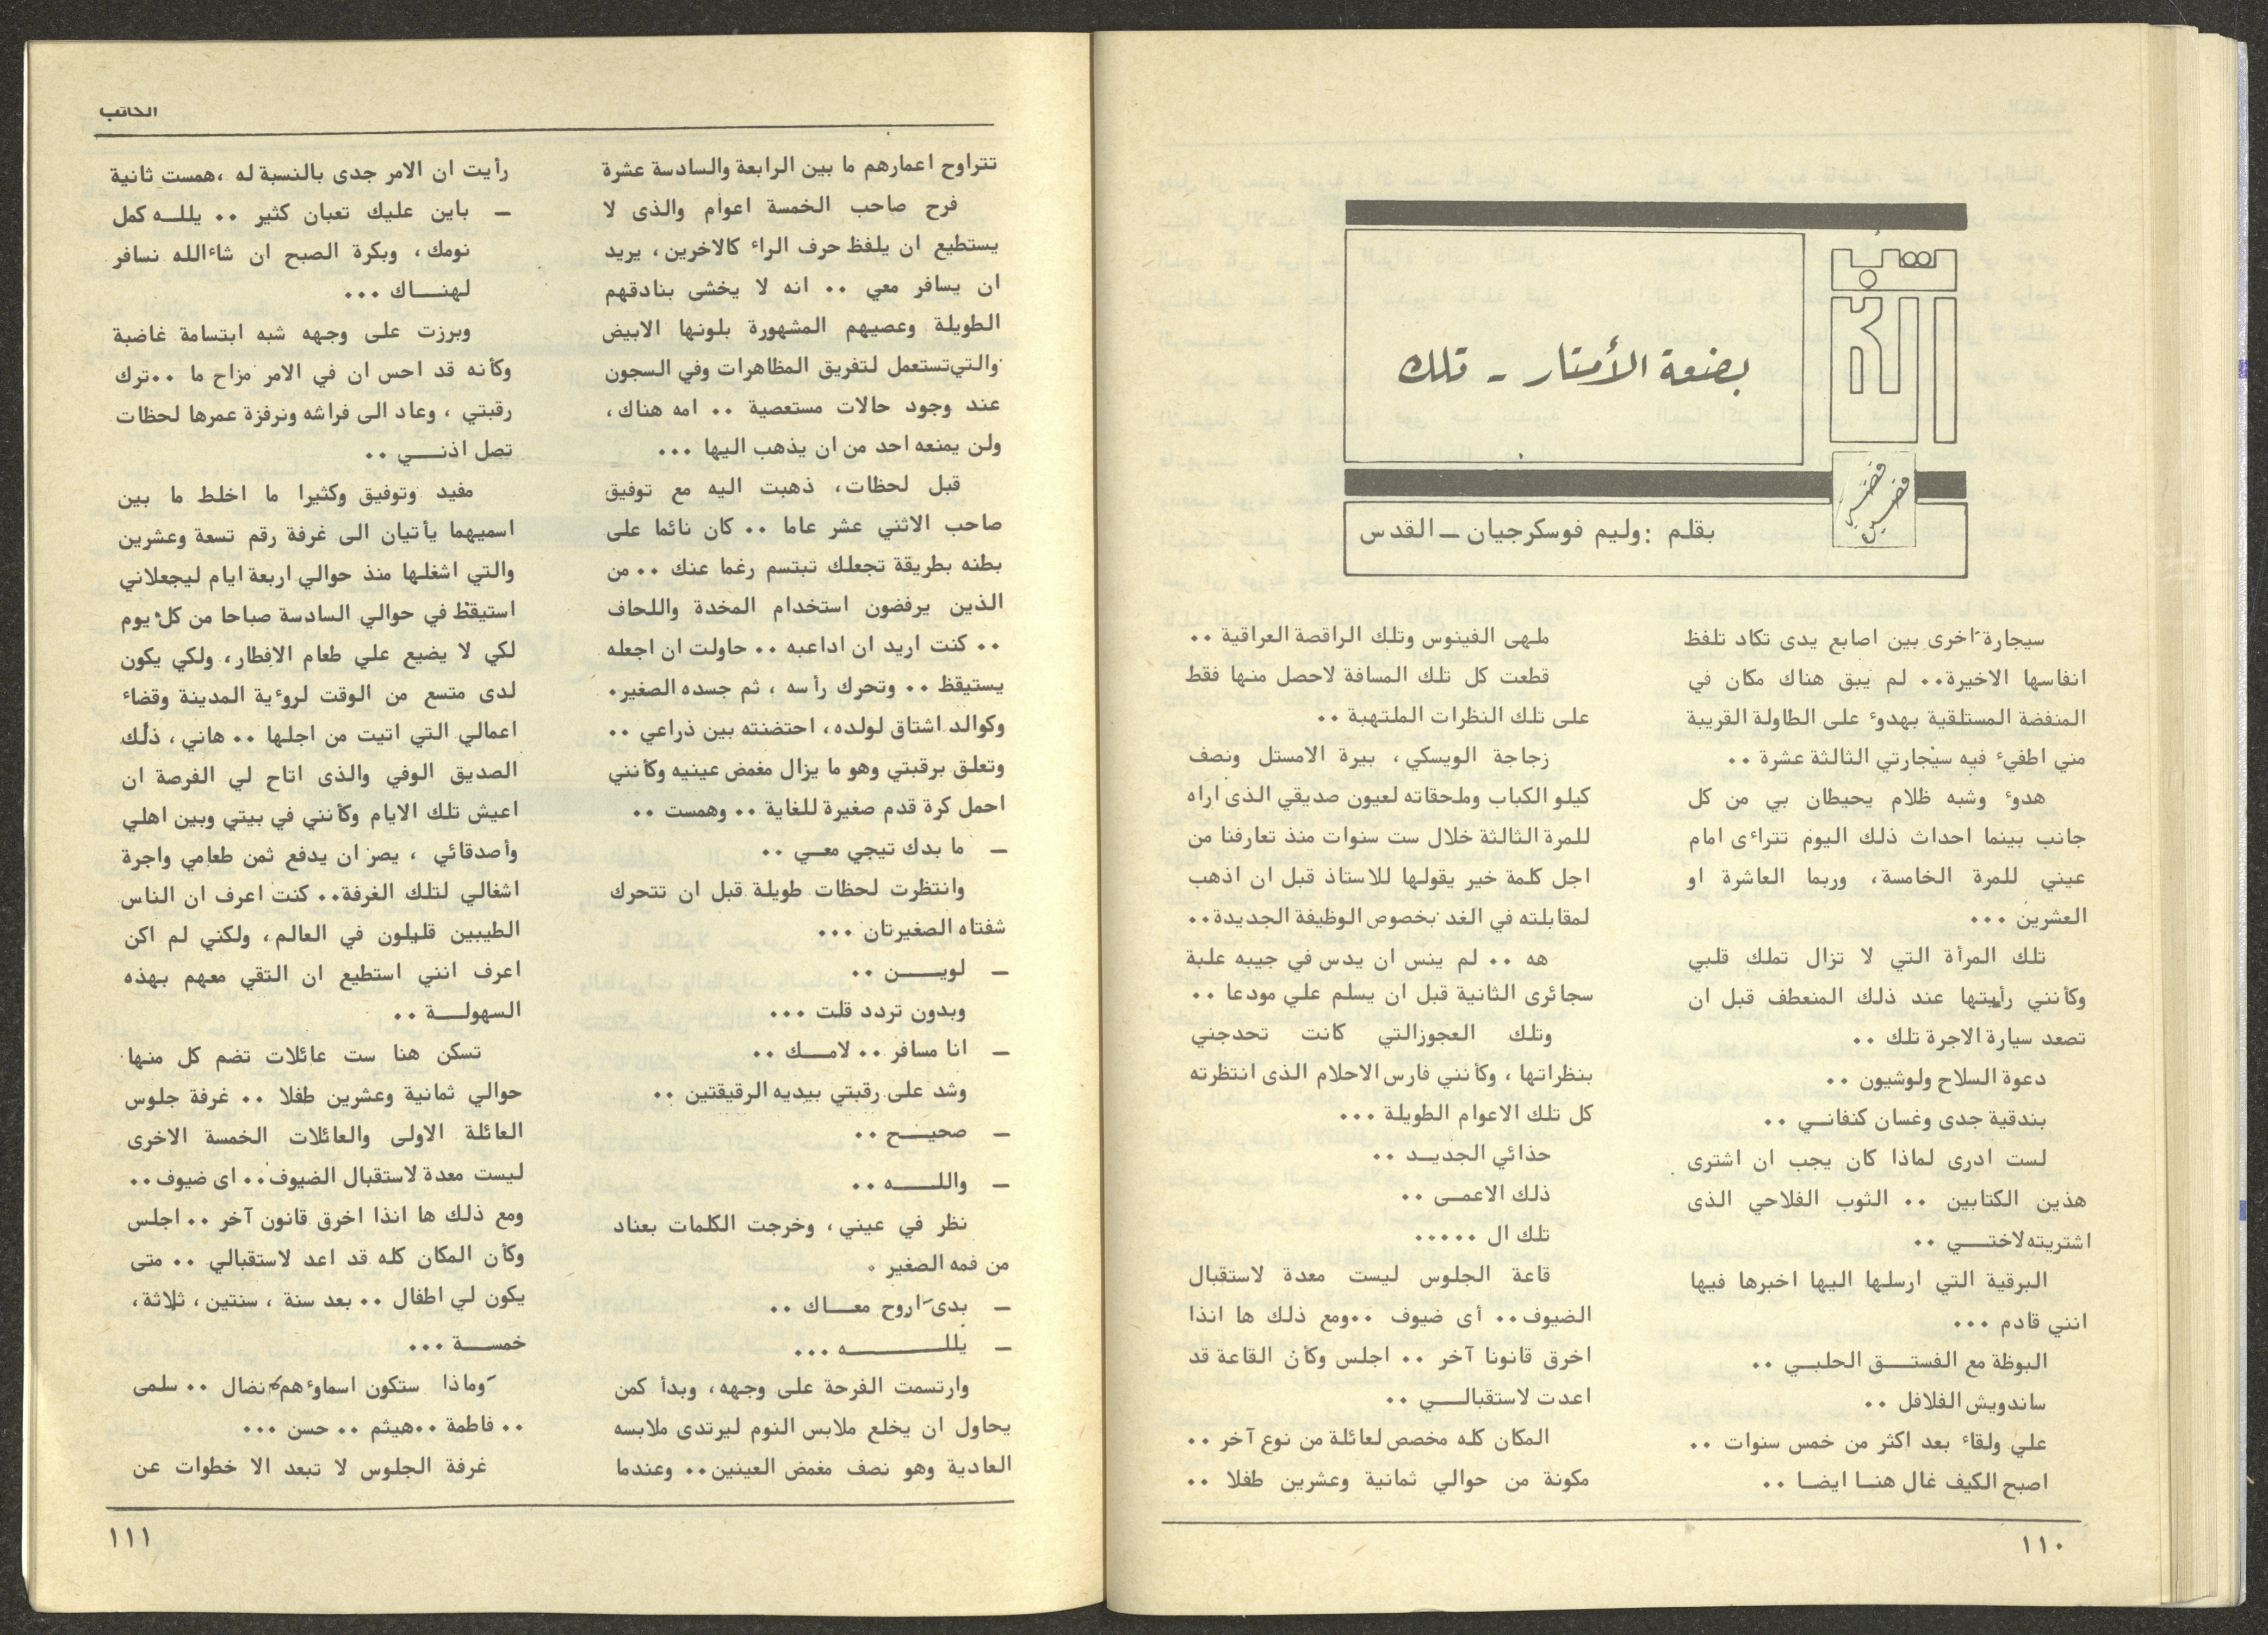 بضعة الأمتار - تلك
قصة
قصيرة
بقلم : وليم فوسكرجيان – القدس
سيجارة اخرى بين اصابع يدى تكاد تلفظ
انفاسها الاخيرة.. لم يبق هناك مكان في
المنفضة المستلقية بهدوء على الطاولة القريبة
مني اطفيء فيه سيجارتي الثالثة عشرة ..
هدوء وشبه ظلام يحيطان بي من كل
جانب بينما احداث ذلك اليوم تتراءى امام
عيني للمرة الخامسة، وربما العاشرة او
العشرين ...
تلك المرأة التي لا تزال تملك قلبي
وكأنني رأيتها عند ذلك المنعطف قبل ان
تصعد سيارة الاجرة تلك ..
دعوة السلاح ولوشيون ..
بندقية جدى وغسان كنفاني ..
لست ادرى لماذا كان يجب ان اشترى
هذين الكتابين .. الثوب الفلاحي الذى
اشتريته لاختي ..
البرقية التي ارسلها اليها اخبرها فيها
انني قادم ...
البوظة مع الفستق الحلبي ..
ساندويش الفلافل ..
علي ولقاء بعد اكثر من خمس سنوات ..
اصبح الكيف غال هنا ايضا ..
ملهى الفينوس وتلك الراقصة العراقية ..
قطعت كل تلك المسافة لاحصل منها فقط
على تلك النظرات الملتهبة ..
زجاجة الويسكي، بيرة الامستل ونصف
كيلو الكباب وملحقاته لعيون صديقي الذى اراه
للمرة الثالثة خلال ست سنوات منذ تعارفنا من
اجل كلمة خير يقولها للاستاذ قبل ان اذهب
لمقابلته في الغد بخصوص الوظيفة الجديدة..
هه .. لم ينس ان يدس في جيبه علبة
سجائرى الثانية قبل ان يسلم علي مودعا ..
وتلك العجوزالتي كانت تحدجني
بنظراتها ، وكأنني فارس الاحلام الذى انتظرته
كل تلك الاعوام الطويلة ...
حذائي الجديد ..
ذلك الاعمى ..
تلك ال .....
قاعة الجلوس ليست معدة لاستقبال
الضيوف.. أى ضيوف ..ومع ذلك ها انذا
اخرق قانونا آخر .. اجلس وكأن القاعة قد
اعدت لاستقبالي ..
المكان كله مخصص لعائلة من نوع آخر ..
مكونة من حوالي ثمانية وعشرين طفلا ..
١١٠
الكاتب
تتراوح اعمارهم ما بين الرابعة والسادسة عشرة
فرح صاحب الخمسة اعوام والذى لا
يستطيع ان يلفظ حرف الراء كالاخرين، يريد
ان يسافر معي .. انه لا يخشى بنادقهم
الطويلة وعصيهم المشهورة بلونها الابيض
والتي تستعمل لتفريق المظاهرات وفي السجون
عند وجود حالات مستعصية .. امه هناك،
ولن يمنعه احد من ان يذهب اليها ...
قبل لحظات، ذهبت اليه مع توفيق
صاحب الاثني عشر عاما .. كان نائما على
بطنه بطريقة تجعلك تبتسم رغما عنك .. من
الذين يرفضون استخدام المخدة واللحاف
.. كنت اريد ان اداعبه .. حاولت ان اجعله
يستيقظ .. وتحرك رأسه ، ثم جسده الصغير.
وكوالد اشتاق لولده، احتضنته بين ذراعي ..
وتعلق برقبتي وهو ما يزال مغمض عينيه وكأنني
احمل كرة قدم صغيرة للغاية .. وهمست ..
– ما بدك تيجي معي ..
وانتظرت لحظات طويلة قبل ان تتحرك
شفتاه الصغيرتان ...
– لوين ..
وبدون تردد قلت ...
– انا مسافر .. لامك ..
وشد على رقبتي بيديه الرقيقتين ..
– صحيح ..
– والله ..
نظر في عيني، وخرجت الكلمات بعناد
من فمه الصغير .
– بدى اروح معاك ..
– يلله ...
وارتسمت الفرحة على وجهه، وبدأ كمن
يحاول ان يخلع ملابس النوم ليرتدى ملابسه
العادية وهو نصف مغمض العينين.. وعندما
رأيت ان الامر جدى بالنسبة له ،همست ثانية
– باين عليك تعبان كثير .. يلله كمل
نومك، وبكرة الصبح ان شاءالله نسافر
لهناك ...
وبرزت على وجهه شبه ابتسامة غاضبة
وكأنه قد احس ان في الامر مزاح ما ..ترك
رقبتي ، وعاد الى فراشه ونرفزة عمرها لحظات
تصل اذني ..
مفيد وتوفيق وكثيرا ما اخلط ما بين
اسميهما يأتيان الى غرفة رقم تسعة وعشرين
والتي اشغلها منذ حوالي اربعة ايام ليجعلاني
استيقظ في حوالي السادسة صباحا من كل يوم
لكي لا يضيع علي طعام الافطار، ولكي يكون
لدى متسع من الوقت لروءية المدينة وقضاء
اعمالي التي اتيت من اجلها .. هاني، ذلك
الصديق الوفي والذى اتاح لي الفرصة ان
اعيش تلك الايام وكأنني في بيتي وبين اهلي
وأصدقائي ، يصر ان يدفع ثمن طعامي واجرة
اشغالي لتلك الغرفة.. كنت اعرف ان الناس
الطيبين قليلون في العالم، ولكني لم اكن
اعرف انني استطيع ان التقي معهم بهذه
السهولة ..
تسكن هنا ست عائلات تضم كل منها
حوالي ثمانية وعشرين طفلا .. غرفة جلوس
العائلة الاولى والعائلات الخمسة الاخرى
ليست معدة لاستقبال الضيوف.. اى ضيوف..
ومع ذلك ها انذا اخرق قانون آخر .. اجلس
وكأن المكان كله قد اعد لاستقبالي .. متى
يكون لي اطفال .. بعد سنة ، سنتين، ثلاثة،
خمسة ...
وماذا ستكون اسماوءهم نضال .. سلمى
.. فاطمة ..هيثم .. حسن ...
غرفة الجلوس لا تبعد الا خطوات عن
١١١